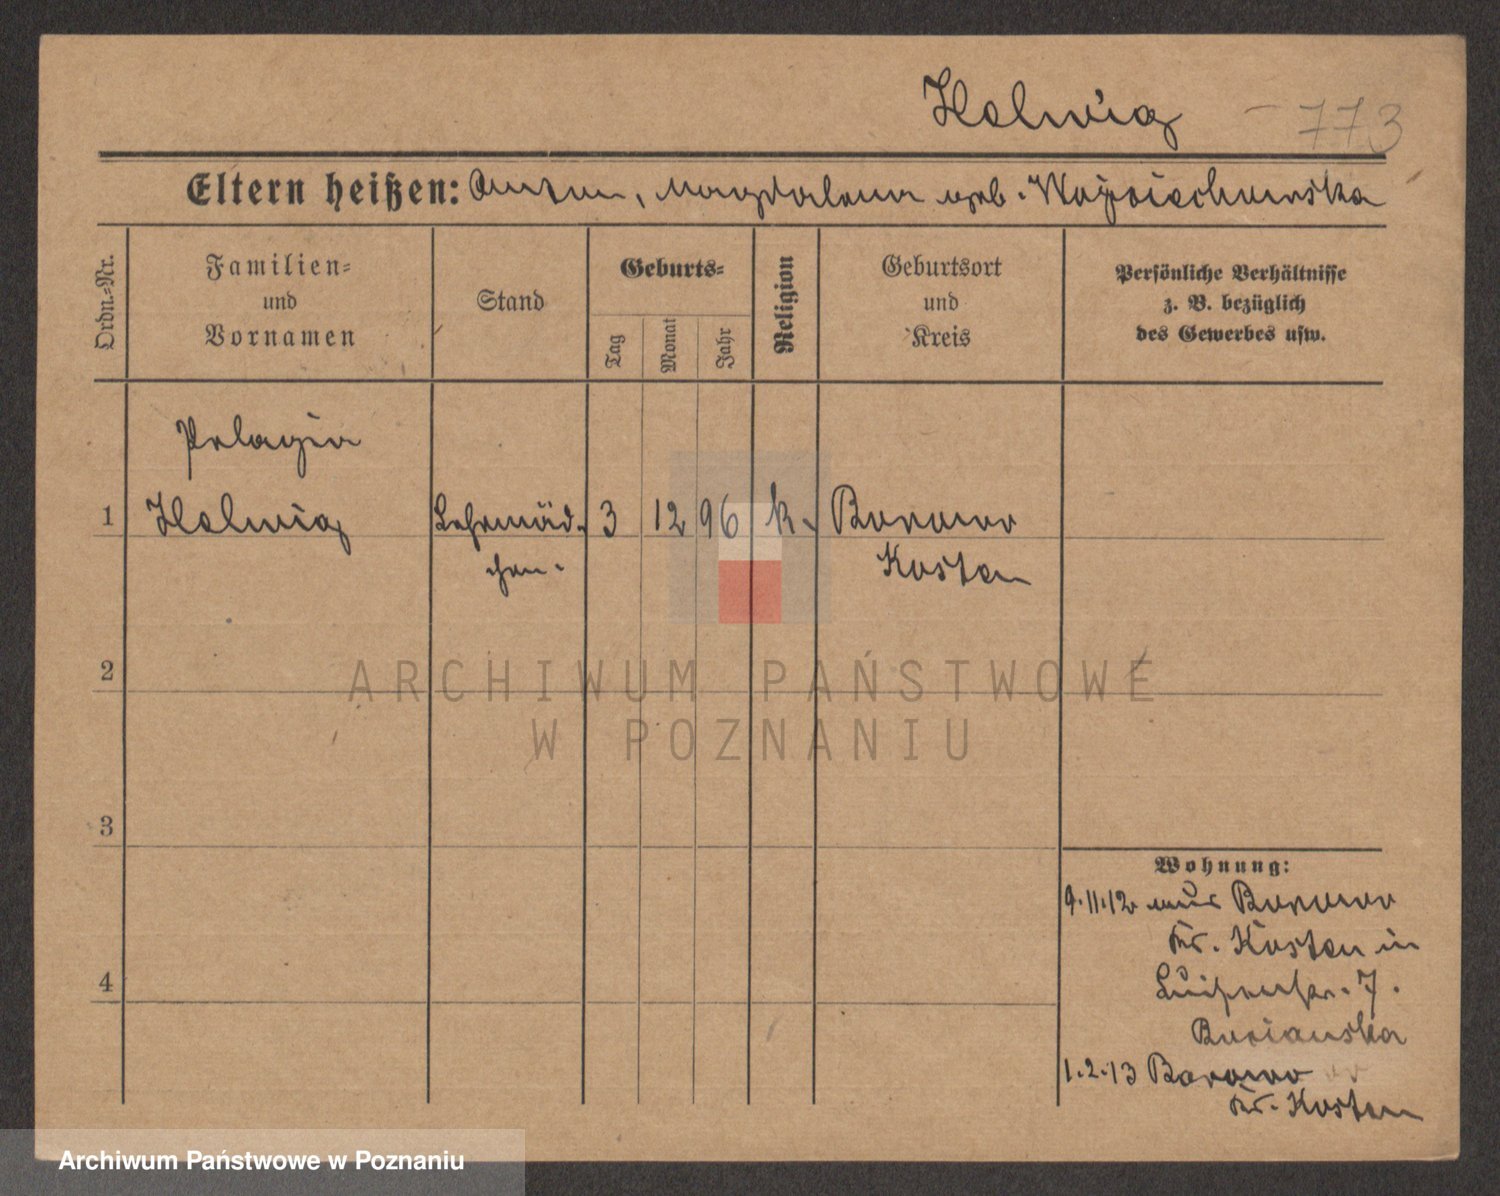 Helwig - 773
Eltern heißen: Anton, Magdalena geb. Wojciechowska
Ordn.-Nr.
Familien-
und
Vornamen
Stand
Geburts-
Tag
Monat
Jahr
Religion
Geburtsort
und
Kreis
Persönliche Verhältnisse
z. B. bezüglich
des Gewerbes usw.
Pelagia
1 Helwig Lehrmäd- 3 12 96 k. Borowo
chen. Kosten
2
ARCHIWUM PAŃSTWOWE
W POZNANIU
3
Wohnung:
9.11.12 aus Borowo
Kr. Kosten in
4
Luisenstr. 7.
1.2.13 Borowo
Kr. Kosten
Archiwum Państwowe w Poznaniu